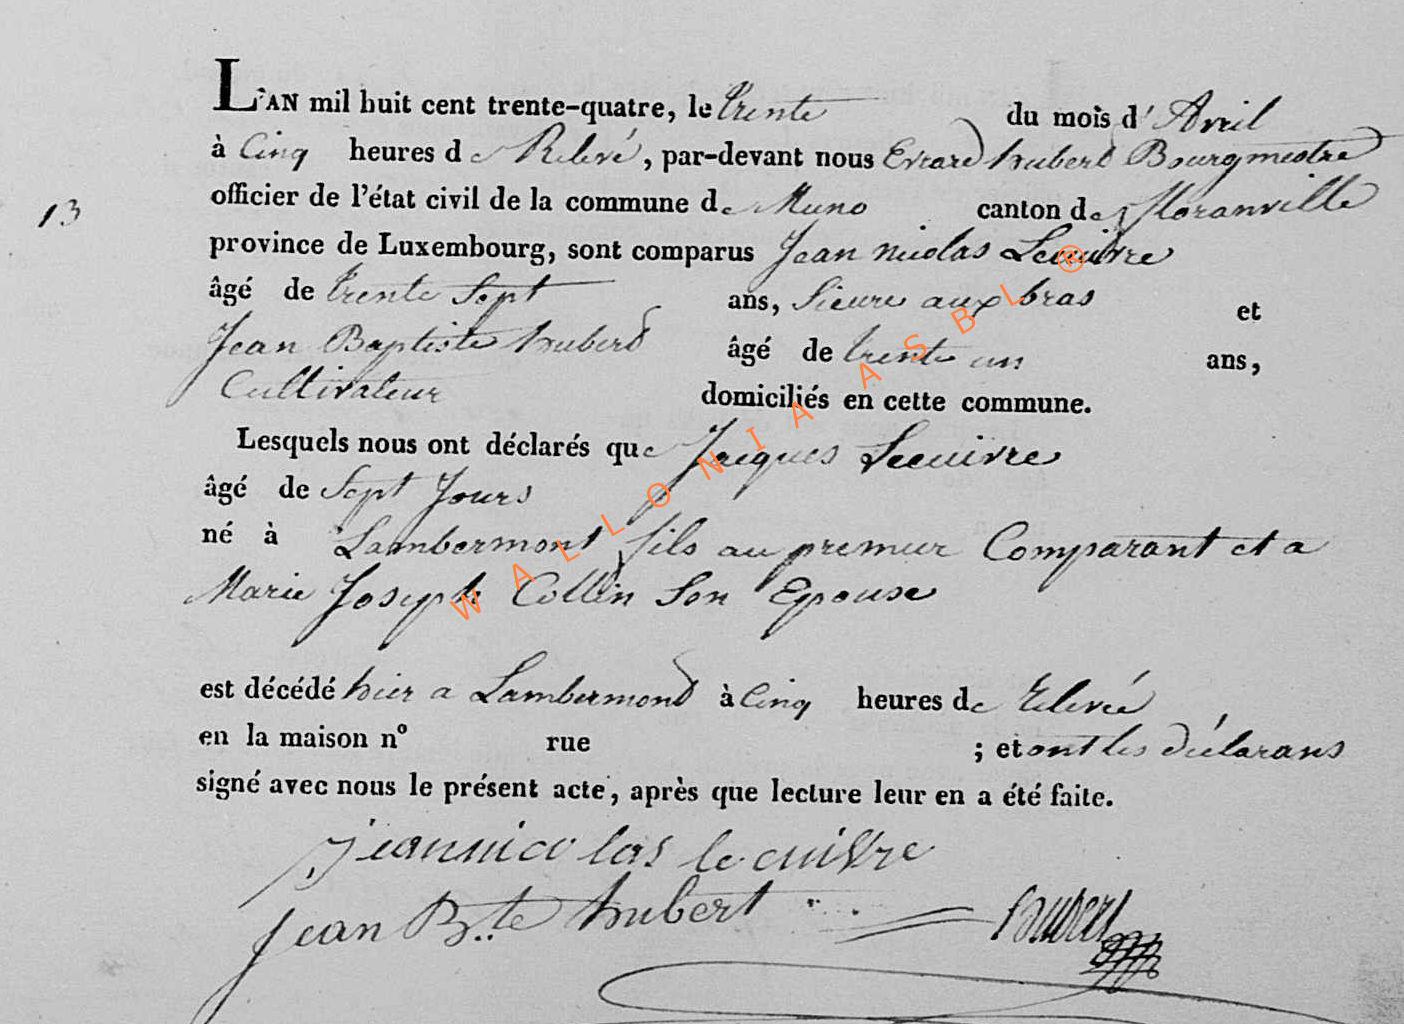 L'AN mil huit cent trente-quatre, le trente du mois d' Avril
à Cinq heures de Relevé, par-devant nous Evrard hubert Bourgmestre
officier de l'état civil de la commune de Muno canton de Floranville
13
province de Luxembourg, sont comparus Jean nicolas Lecuivre
âgé de trente Sept ans, Sieure aux bras et
Jean Baptiste hubert âgé de trente un ans,
Cultivateur domiciliés en cette commune.
Lesquels nous ont déclarés que Jacques Lecuivre
âgé de Sept Jours
né à Lambermont fils au premier Comparant et a
Marie Joseph Collin Son Epouse
est décédé hier a Lambermond à Cinq heures de Relevée
en la maison nº rue ; et ont les déclarans
signé avec nous le présent acte, après que lecture leur en a été faite.
jeannicolas lecuivre
Jean Bte hubert hubert
WALLONIA ASBL ®